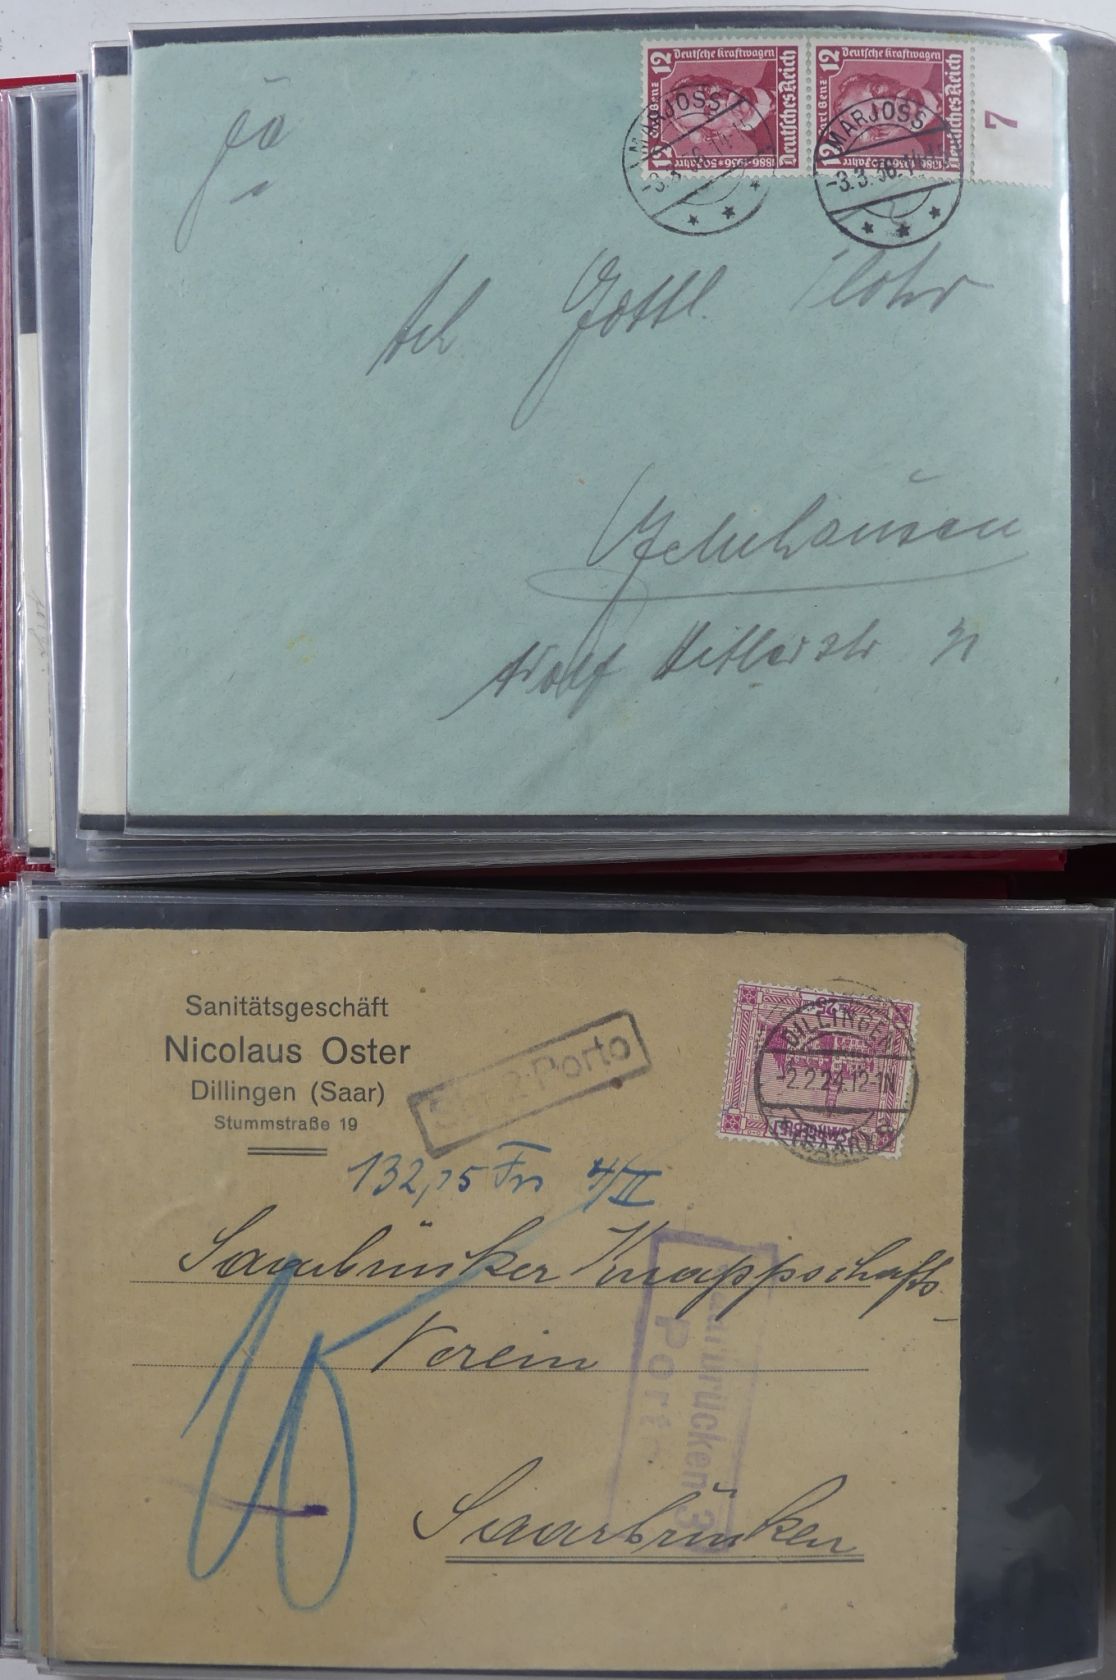 12
Deutsche Kraftwagen
Carl Benz
Deutsches Reich
12
1886-1936-50 Jahre
12
Deutsche Kraftwagen
Carl Benz
Deutsches Reich
12
1886-1936-50 Jahre
7
MARJOSS
-3.3.36.
MARJOSS
-3.3.36.
Gottl.
Adolf Hitlerstr
Sanitätsgeschäft
Nicolaus Oster
Dillingen (Saar)
Stummstraße 19
Porto
25
SAARGEBIET
DILLINGEN
-2.2.24.12-1N
(SAAR)
132,15 Frs 4/II
Saarbrücker Knappschafts-
Verein
Saarbrücken
Saarbrücken 3
Porto